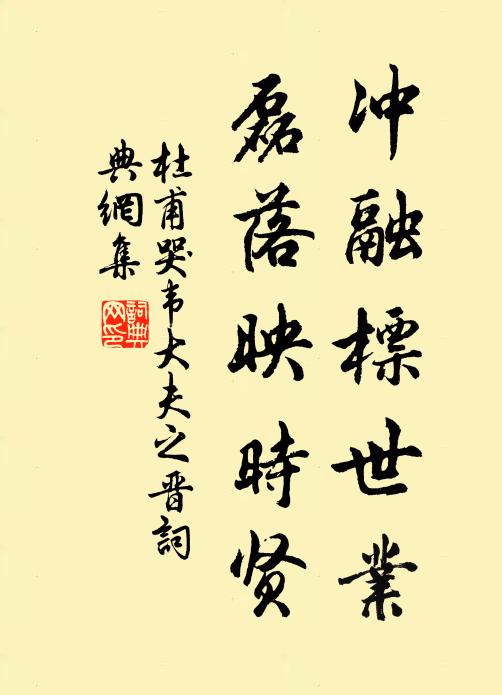 冲融標世業
磊落映時贤
杜甫哭韦大夫之晋詞
典網集
詞典
网印